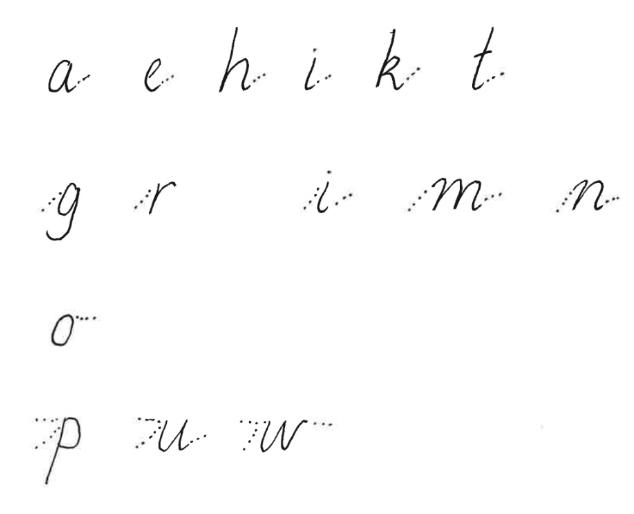 a e h i k t
g r i m n
o
p u w